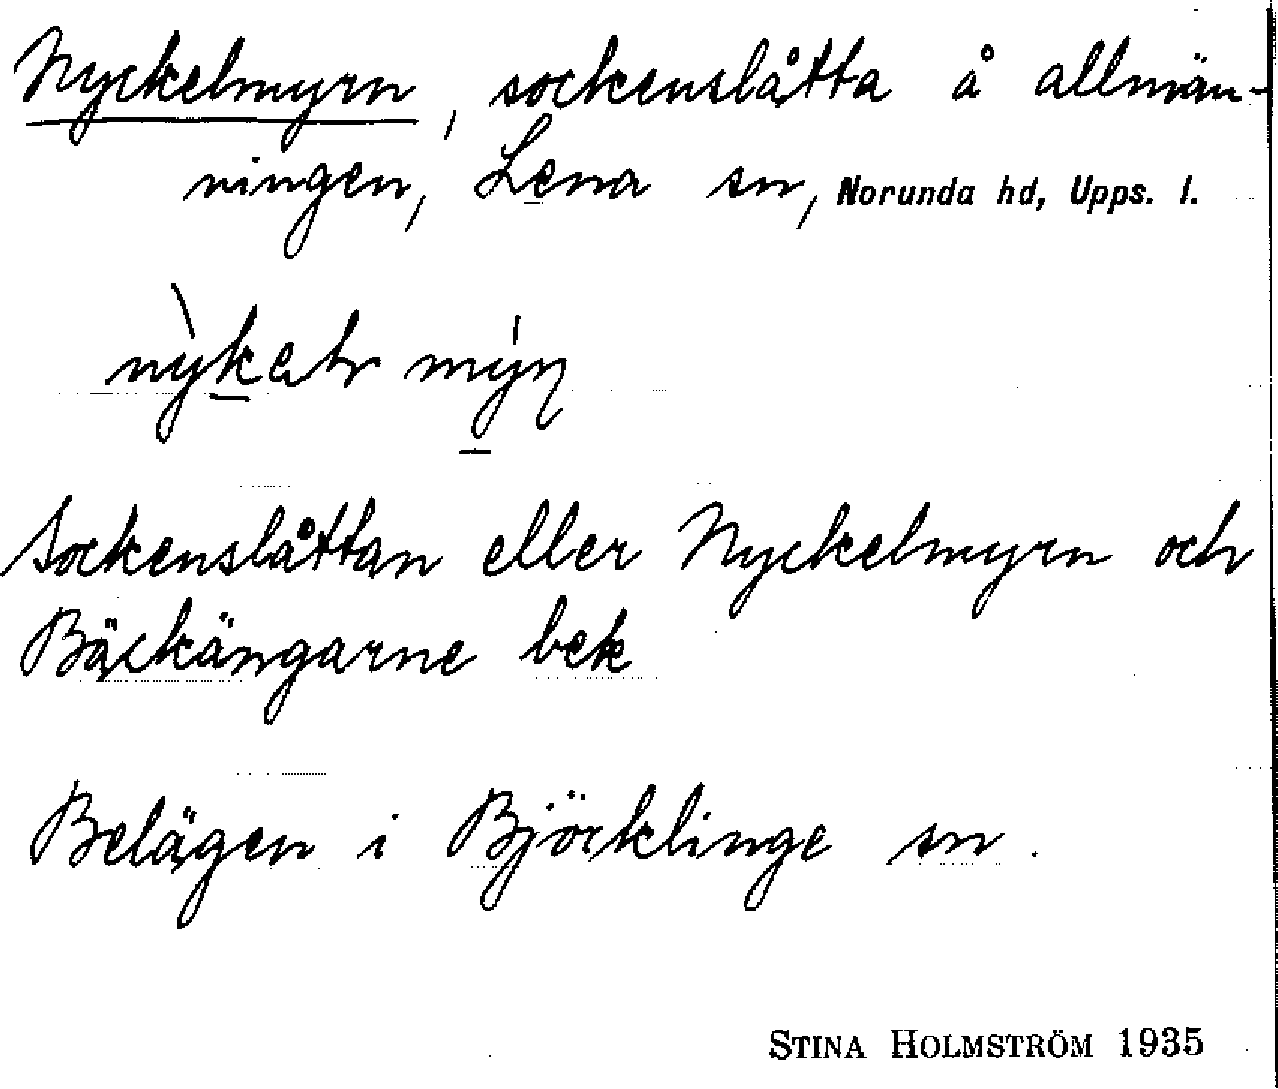 Nyckelmyrn, sockenslåtta å allmän-
ningen, Lena sn, Norunda hd, Upps. l.
Sockenslåttan eller Nyckelmyrn och
Bäckängarne bek
Belägen i Björklinge sn.
STINA HOLMSTRÖM 1935